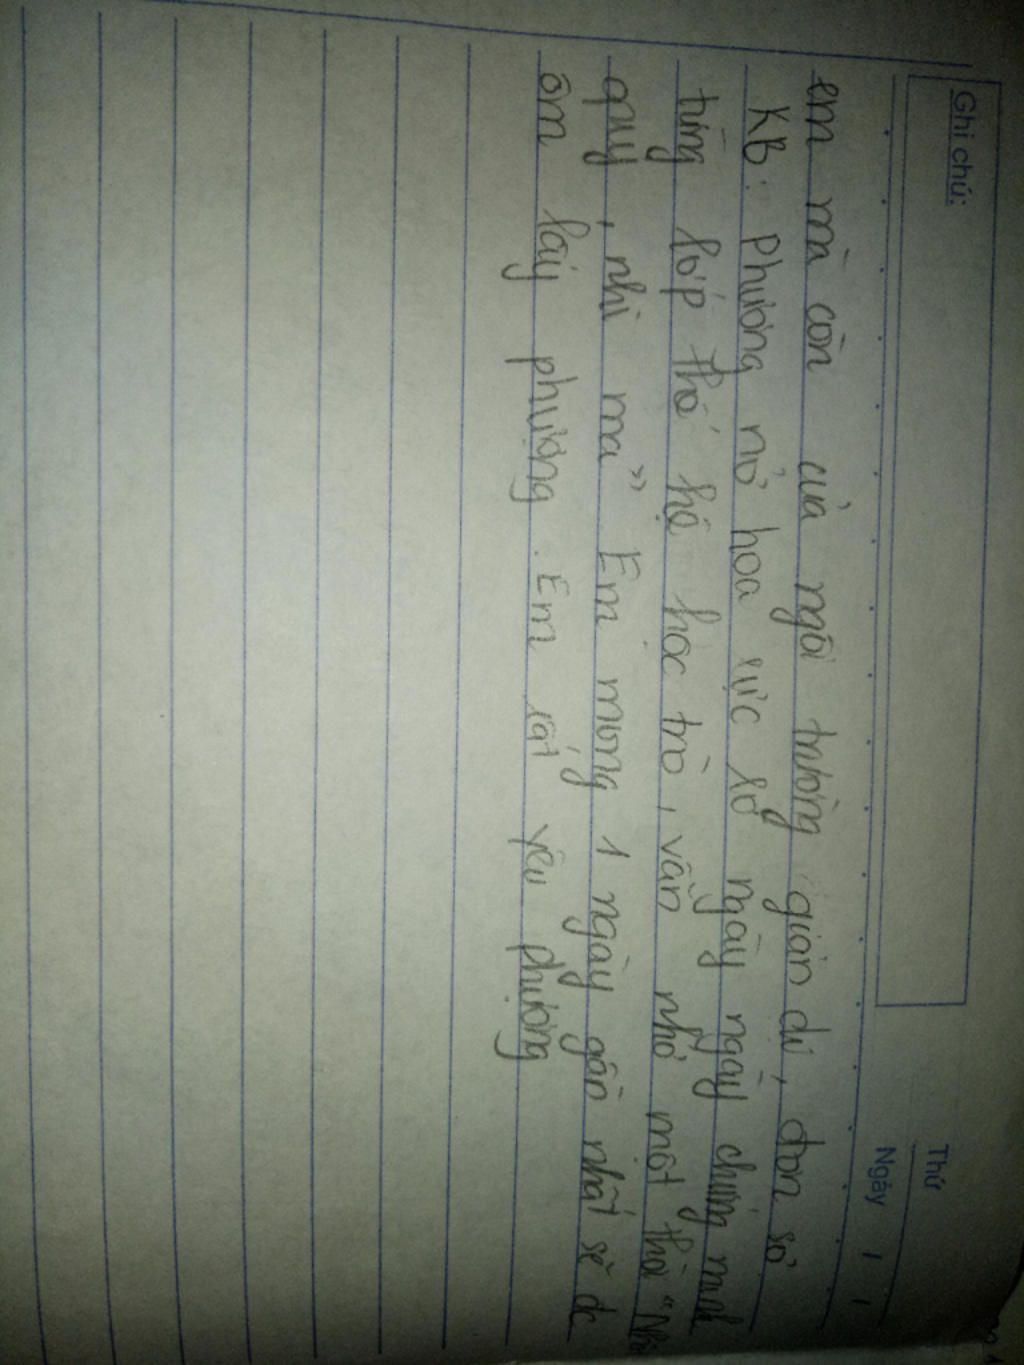 Ghi chú:
Thứ
Ngày / /
em mà còn của ngôi trường giản dị, đơn sơ
KB: Phương nở hoa rực rỡ ngày ngày chứng minh
từng lớp thế hệ học trò, vẫn nhớ một thời "Nhất
quy, nhì ma" Em mong 1 ngày gần nhất sẽ dc
ôm lấy phượng. Em rất yêu phượng